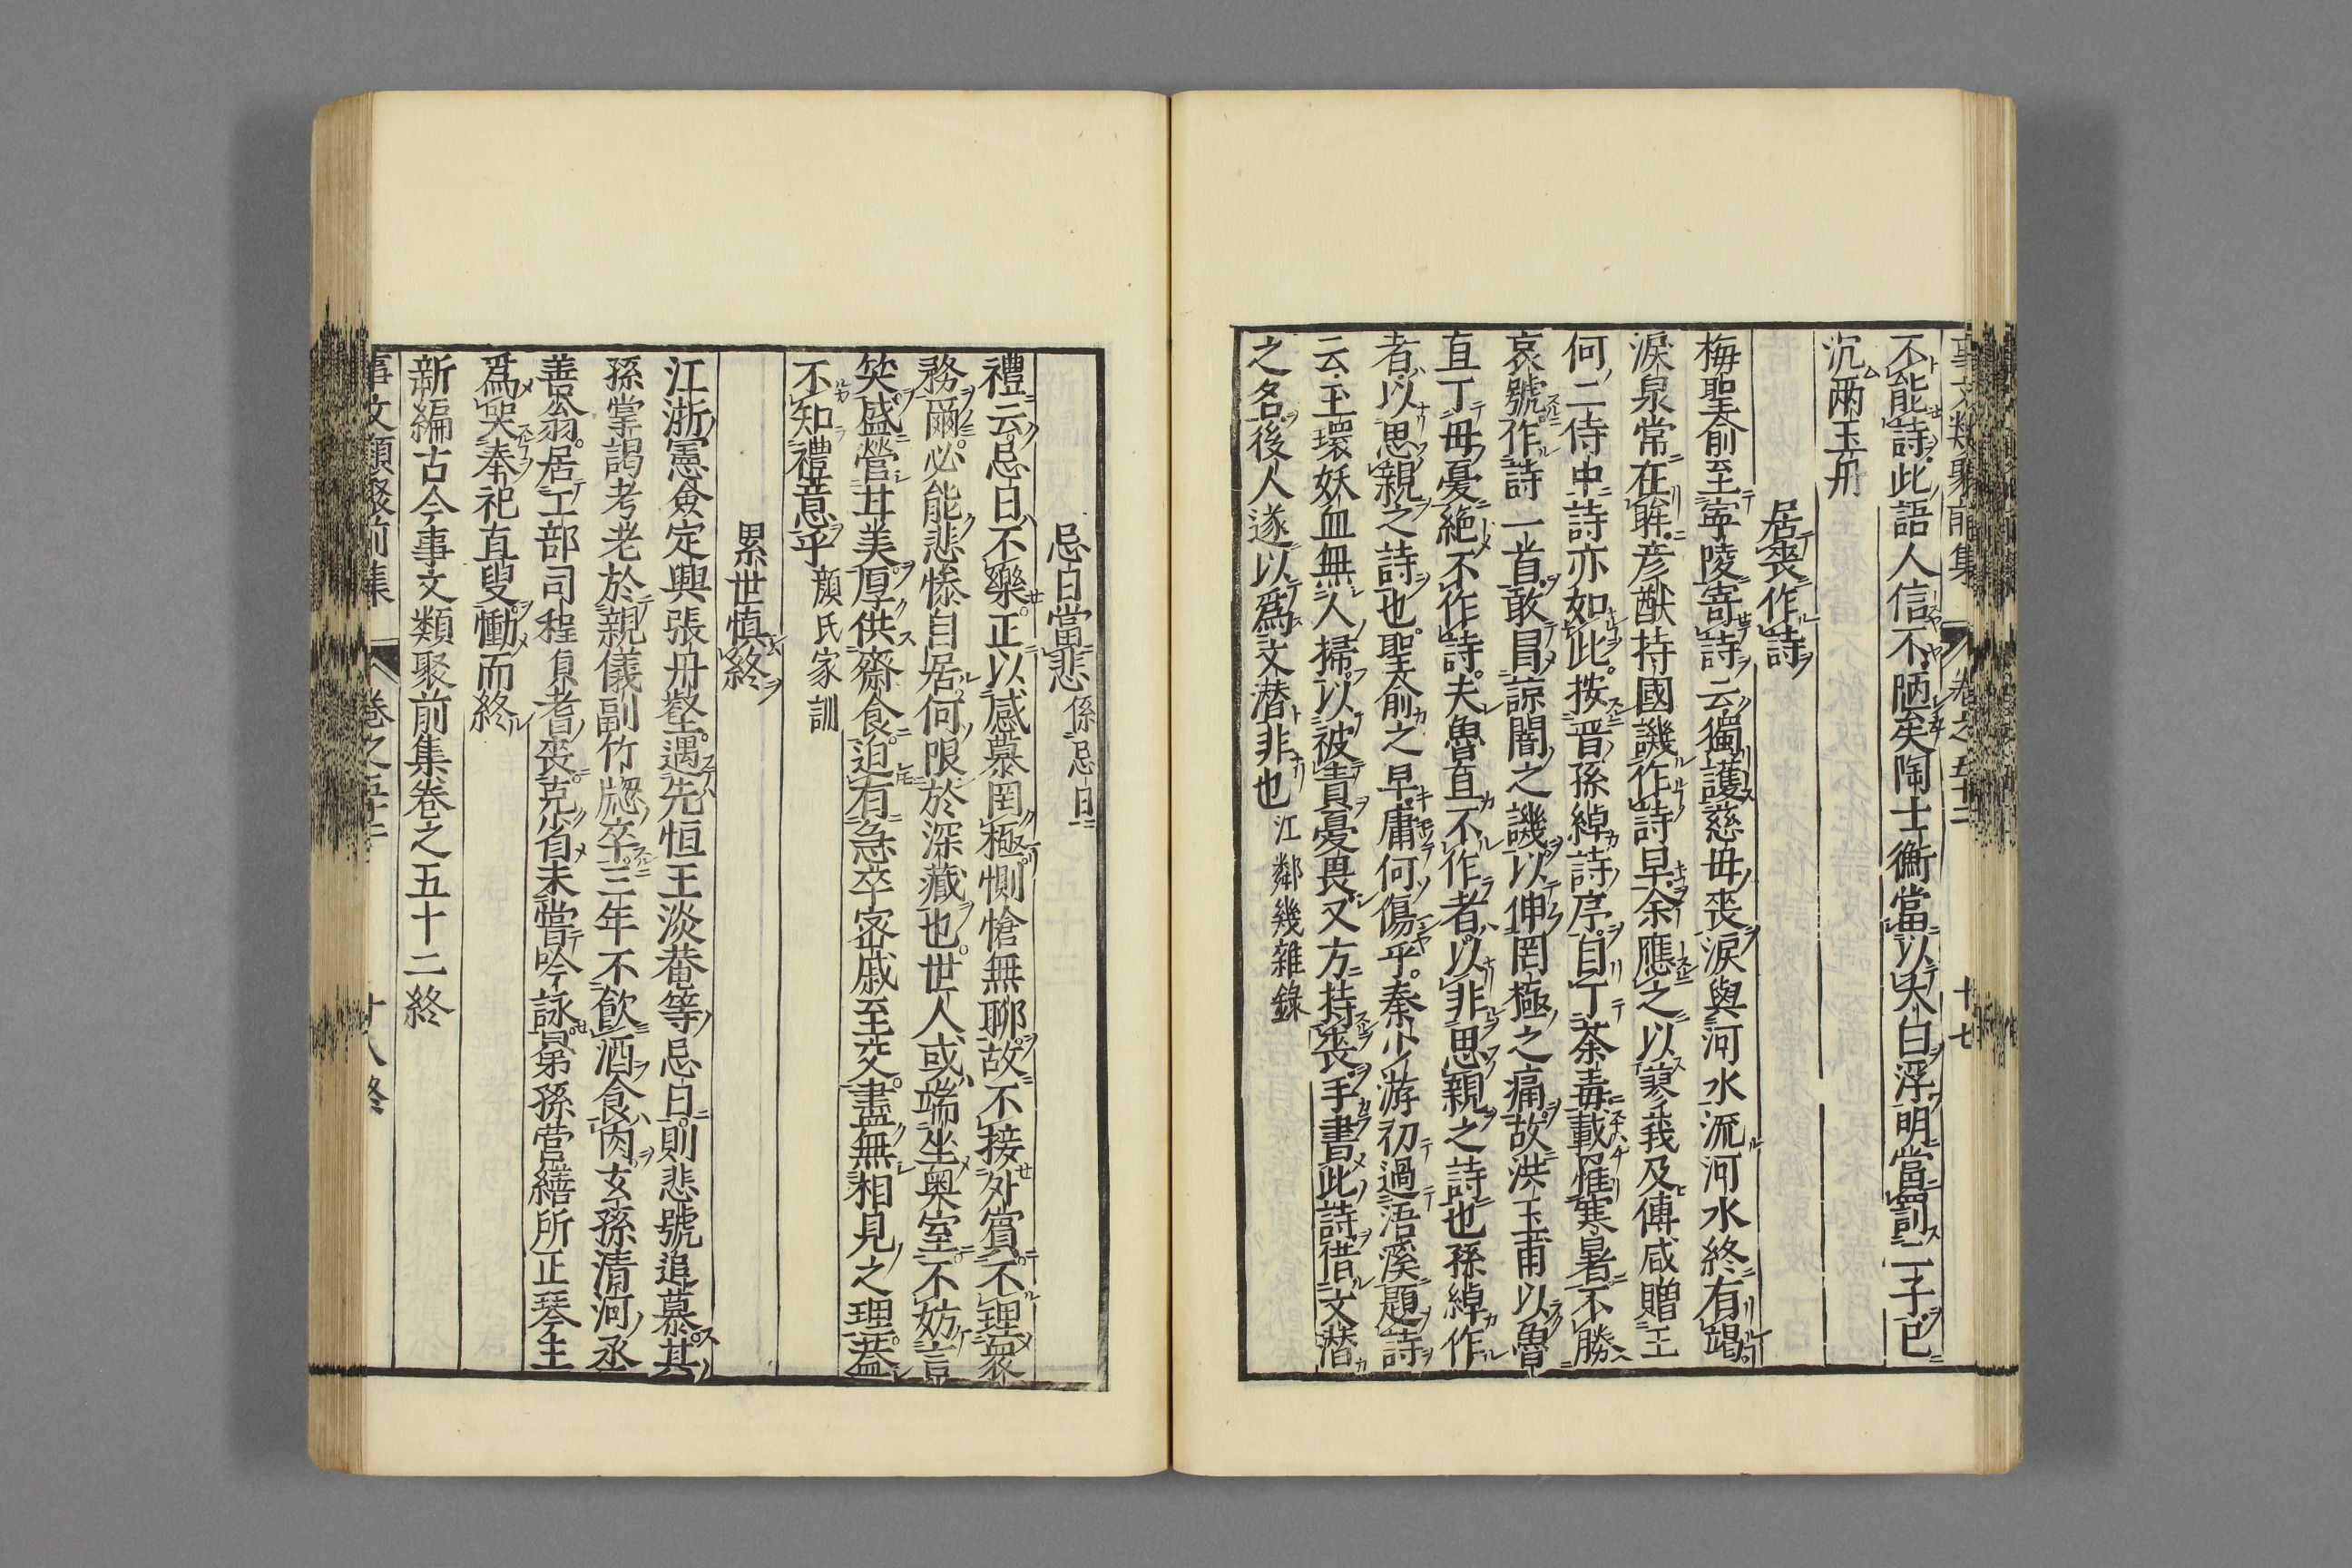 事文類聚前集 卷之五十二 十七
不能詩此語人信不陋矣陶士衡當以大白浮明當罰二子已
沉兩玉舟
居喪作詩
梅聖俞至寧陵寄詩云獨護慈母喪淚與河水流河水終有竭
淚泉常在眸彦猷持國譏作詩早余應之以蓼我及傅咸贈王
何二侍中詩亦如此按晋孫綽詩序自丁荼毒載罹寒暑不勝
哀號作詩一首敢冒諒闇之譏以伸罔極之痛故洪玉甫以魯
直丁母憂絶不作詩夫魯直不作者以非思親之詩也孫綽作
者以思親之詩也聖俞之早庸何傷乎秦少游初過浯溪題詩
云玉環妖血無人掃以被責憂畏又方持喪手書此詩借文潜
之名後人遂以爲文潜非也江鄰幾雜錄
忌日當悲係忌日
禮云忌日不樂正以感慕罔極惻愴無聊故不接外賓不理衆
務爾必能悲慘自居何限於深藏也世人或端坐奥室不妨言
笑盛營甘美厚供齋食迫有急卒宻戚至交盡無相見之理葢
不知禮意乎顔氏家訓
累世慎終
江浙憲僉定興張毋遇先恒王淡菴等忌日則悲號追慕其
孫掌謁考老於親儀副竹卒三年不飲酒食肉玄孫清河丞
善翁居工部司程負耆喪克省未嘗吟詠冕第孫营繕所正琴主
爲哭奉祀直叟慟而終
新編古今事文類聚前集卷之五十二終
事文類聚前集 卷之五十二 十八終